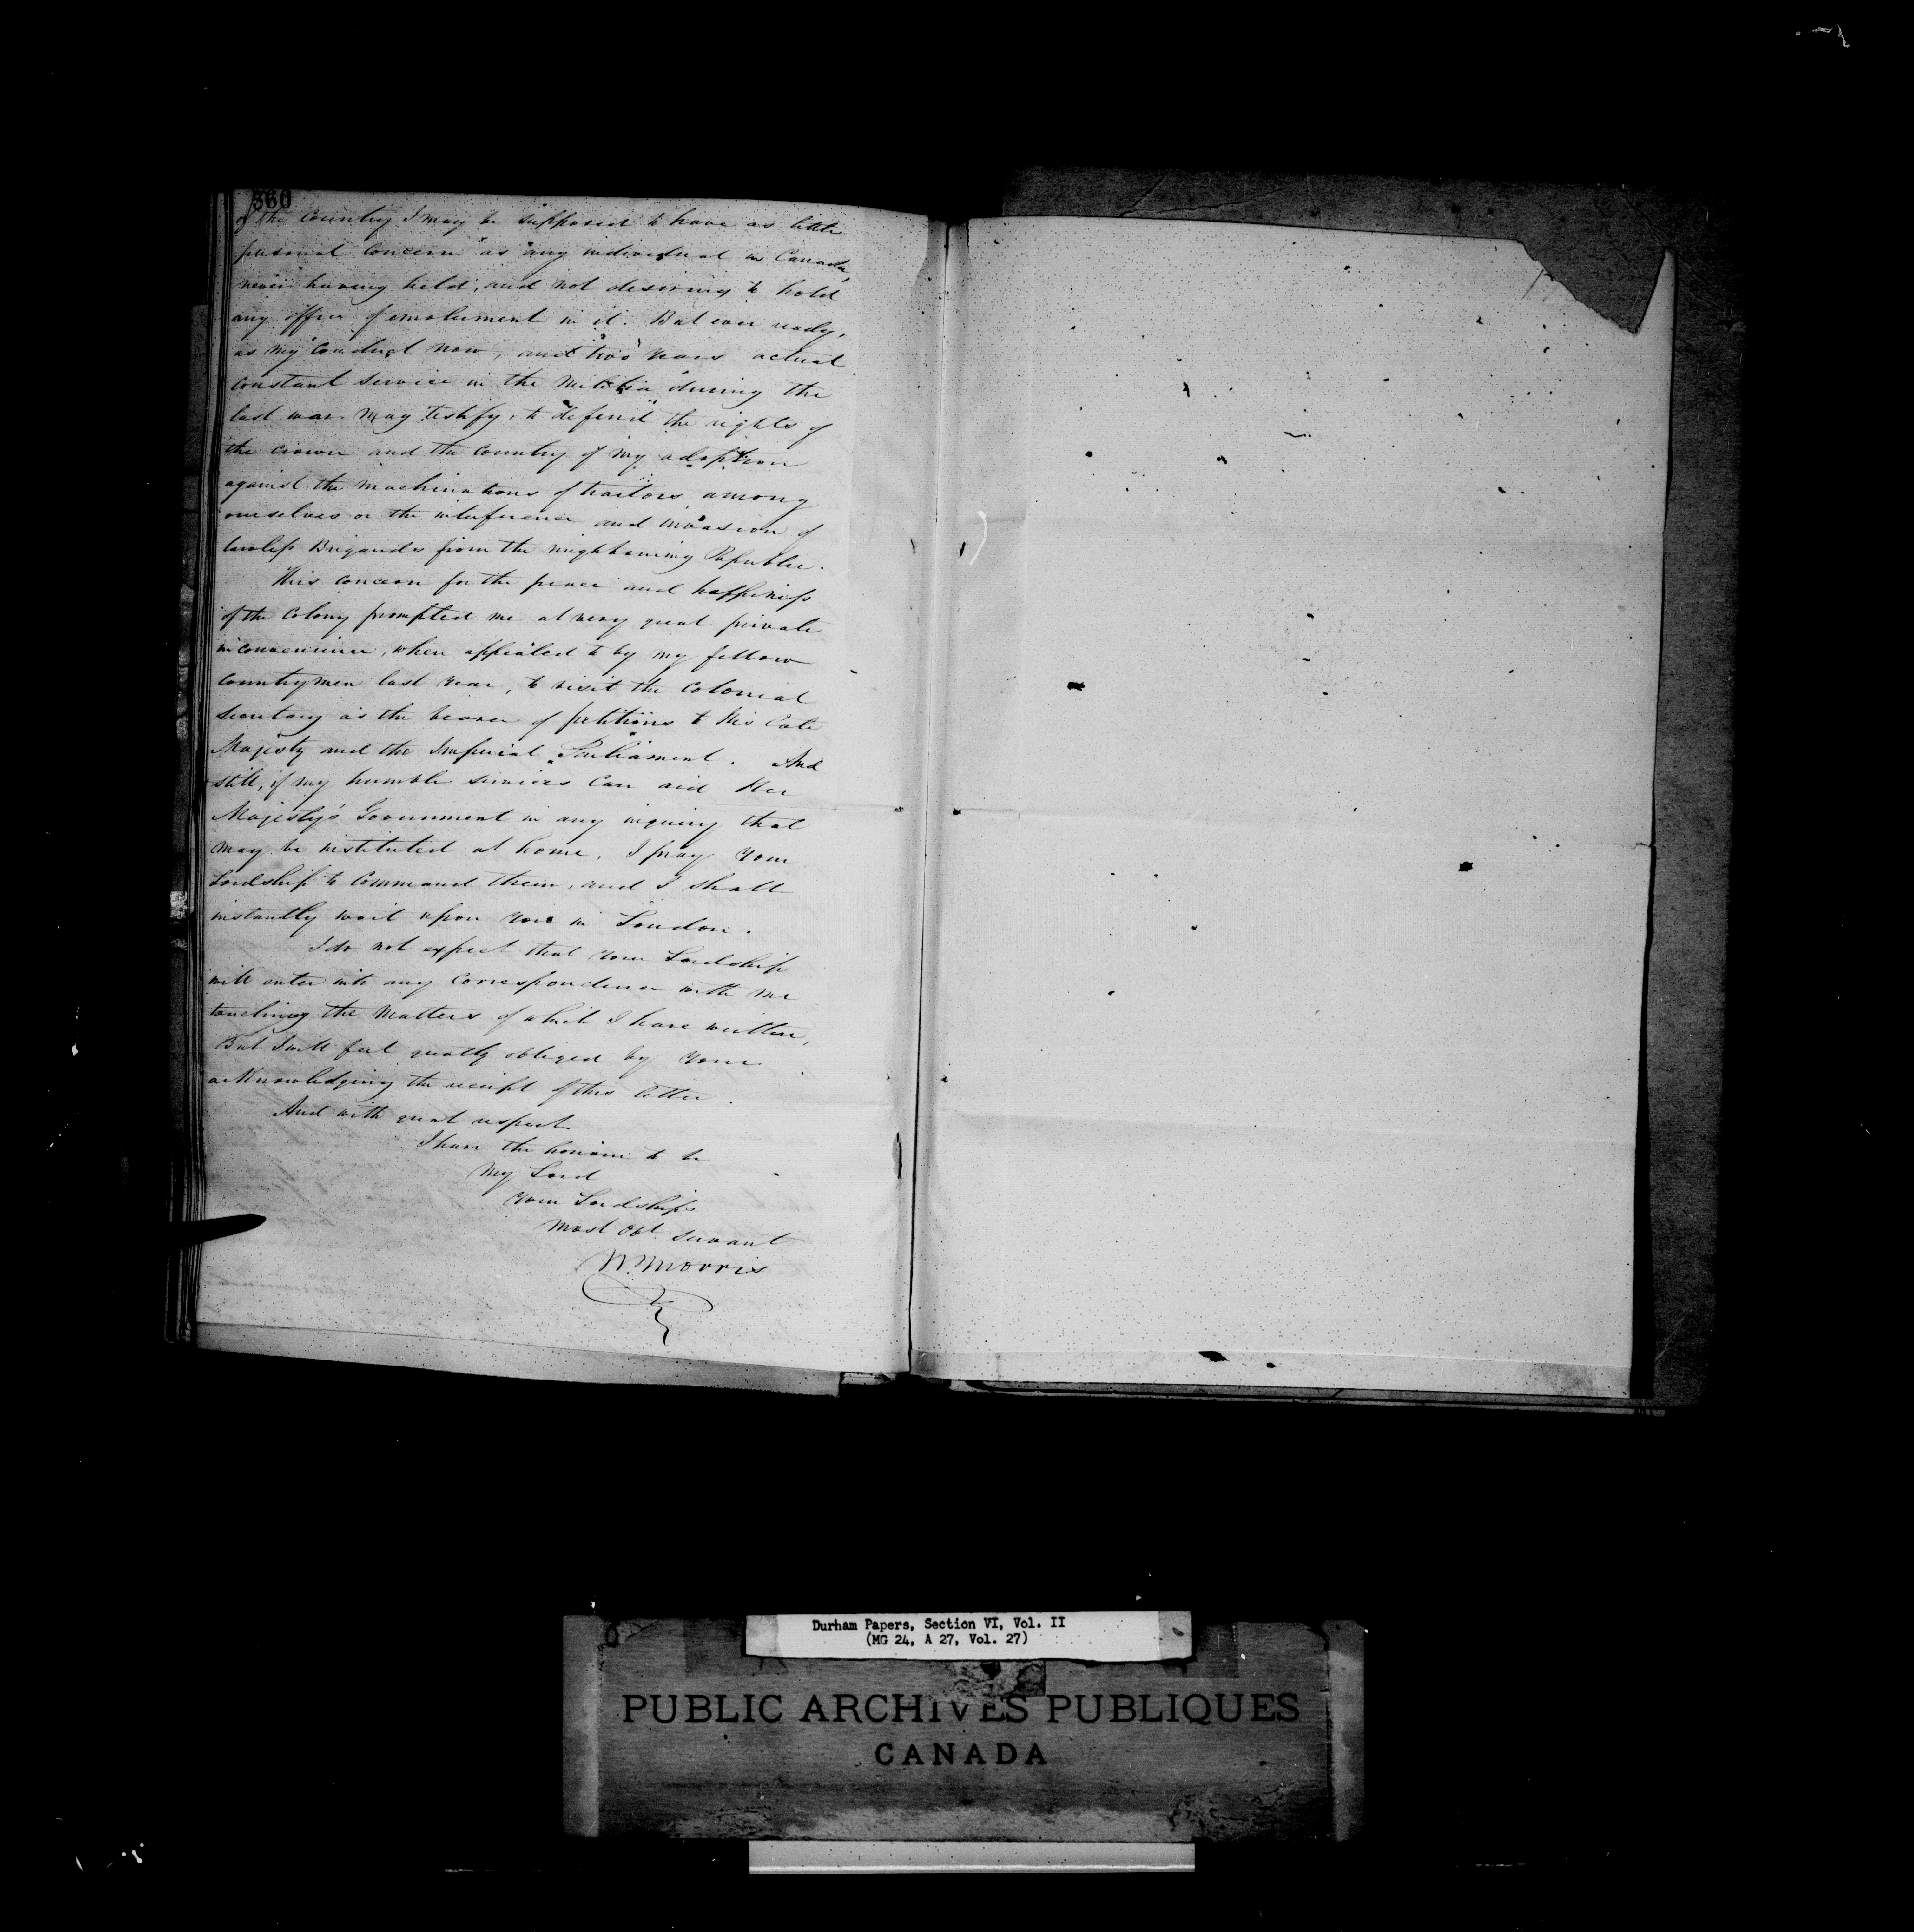 360
of the Country I may be supposed to have as little
personal concern as any individual in Canada,
never having held, and not desiring to hold
any office of emolument in it. But ever ready,
as my conduct now, and two years actual
constant service in the Militia during the
last war may testify, to defend the rights of
the crown and the Country of my adoption
against the machinations of traitors among
ourselves or the interference and invasion of
lawless Brigands from the neighbouring Republic.
This concern for the peace and happiness
of the Colony prompted me at very great private
inconvenience, when appealed to by my fellow
Countrymen last year, to visit the Colonial
Secretary as the bearer of petitions to His late
Majesty and the Imperial Parliament. And
still, if my humble services can aid Her
Majesty's Government in any inquiry that
may be instituted at home, I pray Your
Lordship to Command them, and I shall
instantly wait upon You in London.
I do not expect that Your Lordship
will enter into any Correspondence with me
touching the Matters of which I have written,
But I will feel greatly obliged by Your
acknowledging the receipt of this letter.
And with great respect
I have the honour to be
My Lord
Your Lordship's
Most Obt Servant
W. Morris
Durham Papers, Section VI, Vol. II
(MG 24, A 27, Vol. 27)
PUBLIC ARCHIVES PUBLIQUES
CANADA